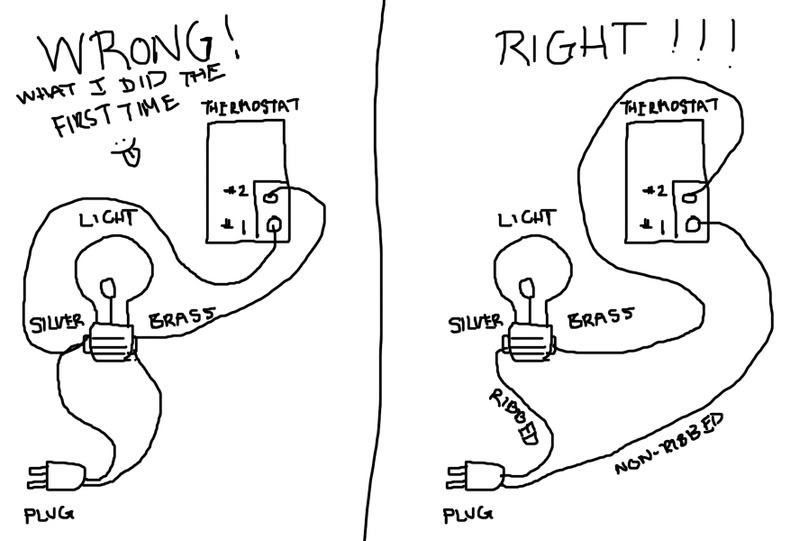 WRONG!
WHAT I DID THE
FIRST TIME
THERMOSTAT
#2
#1
LIGHT
SILVER
BRASS
PLUG
RIGHT!!!
THERMOSTAT
#2
#1
LIGHT
SILVER
BRASS
RIBBED
NON-RIBBED
PLUG